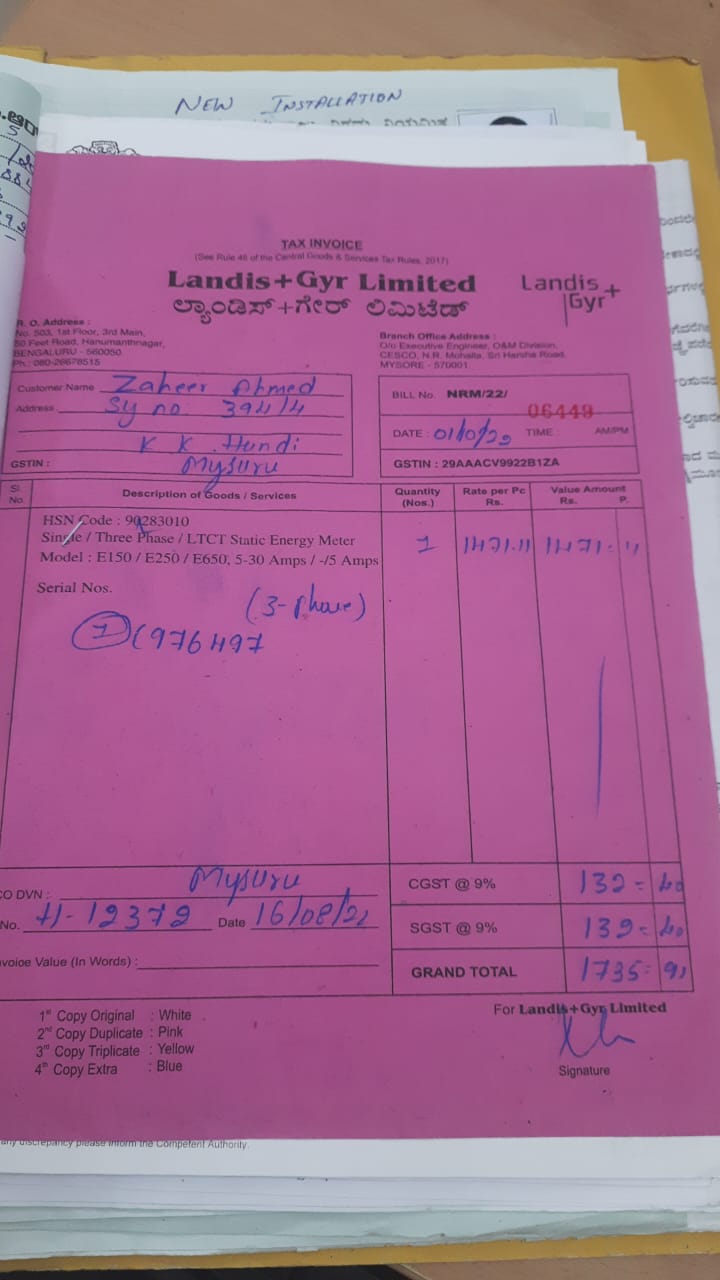 NEW INSTALLATION
TAX INVOICE
(See Rule 46 of the Central Goods & Services Tax Rules, 2017)
Landis+Gyr Limited
ಲ್ಯಾಂಡಿಸ್+ಗೇರ್ ಲಿಮಿಟೆಡ್
Landis
Gyr+
R. O. Address :
No. 503, 1st Floor, 3rd Main,
50 Feet Road, Hanumanthnagar,
BENGALURU - 560050
Ph.: 080-26678515
Branch Office Address :
O/o Executive Engineer, O&M Division,
CESCO, N.R. Mohalla, Sri Harsha Road,
MYSORE - 570001
Customer Name Zaheer Ahmed
Address Sy no. 394/4
K K . Hundi
GSTIN : Mysuru
BILL No. NRM/22/ 06449
DATE : 01/10/22 TIME : AM/PM
GSTIN : 29AAACV9922B1ZA
Sl. No. Description of Goods / Services Quantity (Nos.) Rate per Pc Rs. Value Amount Rs. P.
HSN Code : 90283010
Single / Three Phase / LTCT Static Energy Meter 1 1471.11 1471. 11
Model : E150 / E250 / E650, 5-30 Amps / -/5 Amps
Serial Nos.
(3-phase)
976497
CO DVN : Mysuru
No. 12372 Date 16/08/22
nvoice Value (In Words) :
CGST @ 9% 132 = 40
SGST @ 9% 132 = 40
GRAND TOTAL 1735 = 91
1st Copy Original : White
2nd Copy Duplicate : Pink
3rd Copy Triplicate : Yellow
4th Copy Extra : Blue
For Landis+Gyr Limited
Signature
any discrepancy please inform the Competent Authority.